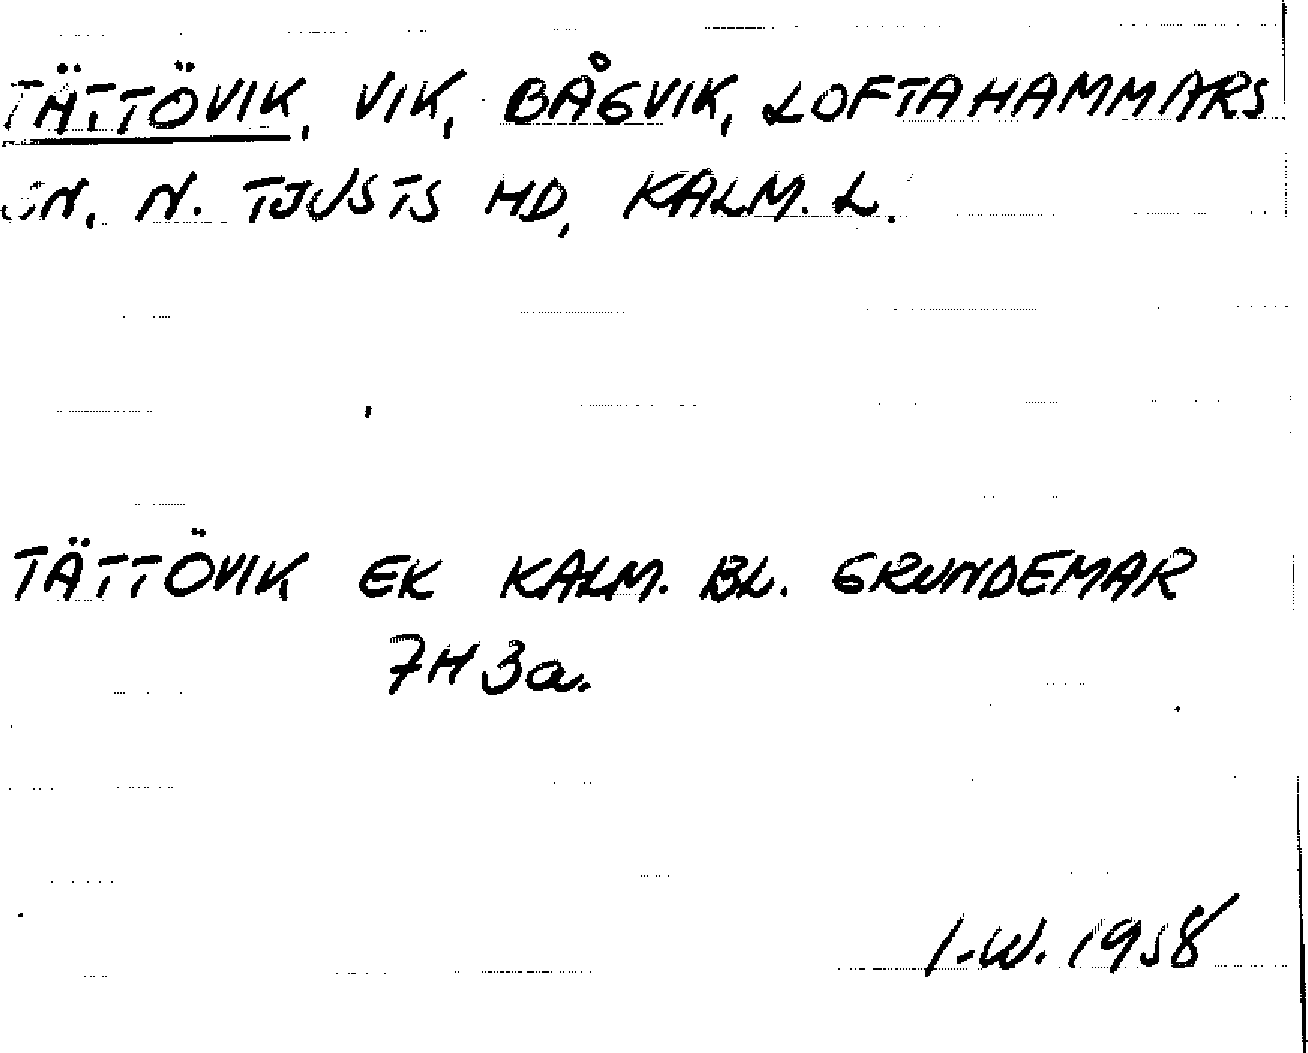 TÄTTÖVIK, VIK, BÅGVIK, LOFTAHAMMARS
SN, N. TJUSTS HD, KALM. L.
TÄTTÖVIK EK KALM. BL. GRUNDEMAR
7H 3a.
I-W. 1958